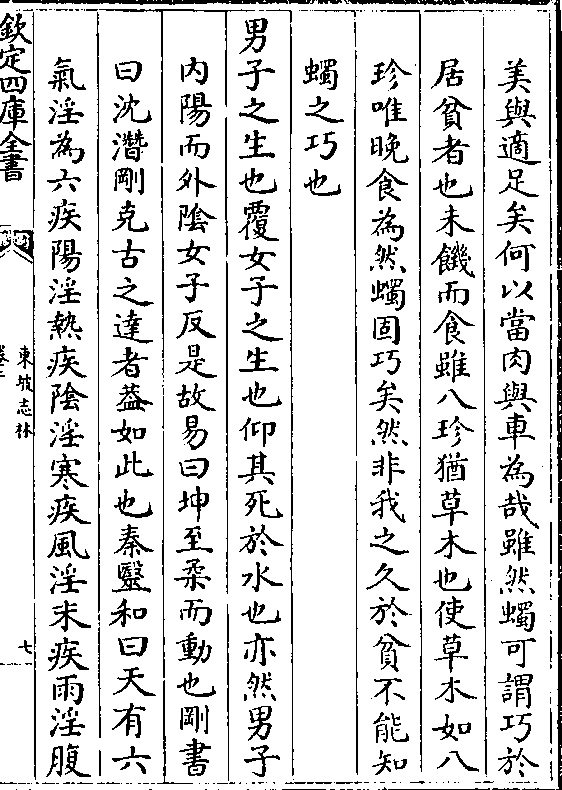 美與適足矣何以當肉與車為哉雖然蠋可謂巧於
居貧者也未饑而食雖八珍猶草木也使草木如八
珍唯晚食為然蠋固巧矣然非我之久於貧不能知
蠋之巧也
男子之生也覆女子之生也仰其死於水也亦然男子
内陽而外陰女子反是故易曰坤至柔而動也剛書
曰沈潛剛克古之達者葢如此也秦醫和曰天有六
氣淫為六疾陽淫熱疾陰淫寒疾風淫末疾雨淫腹
欽定四庫全書
東坡志林
七